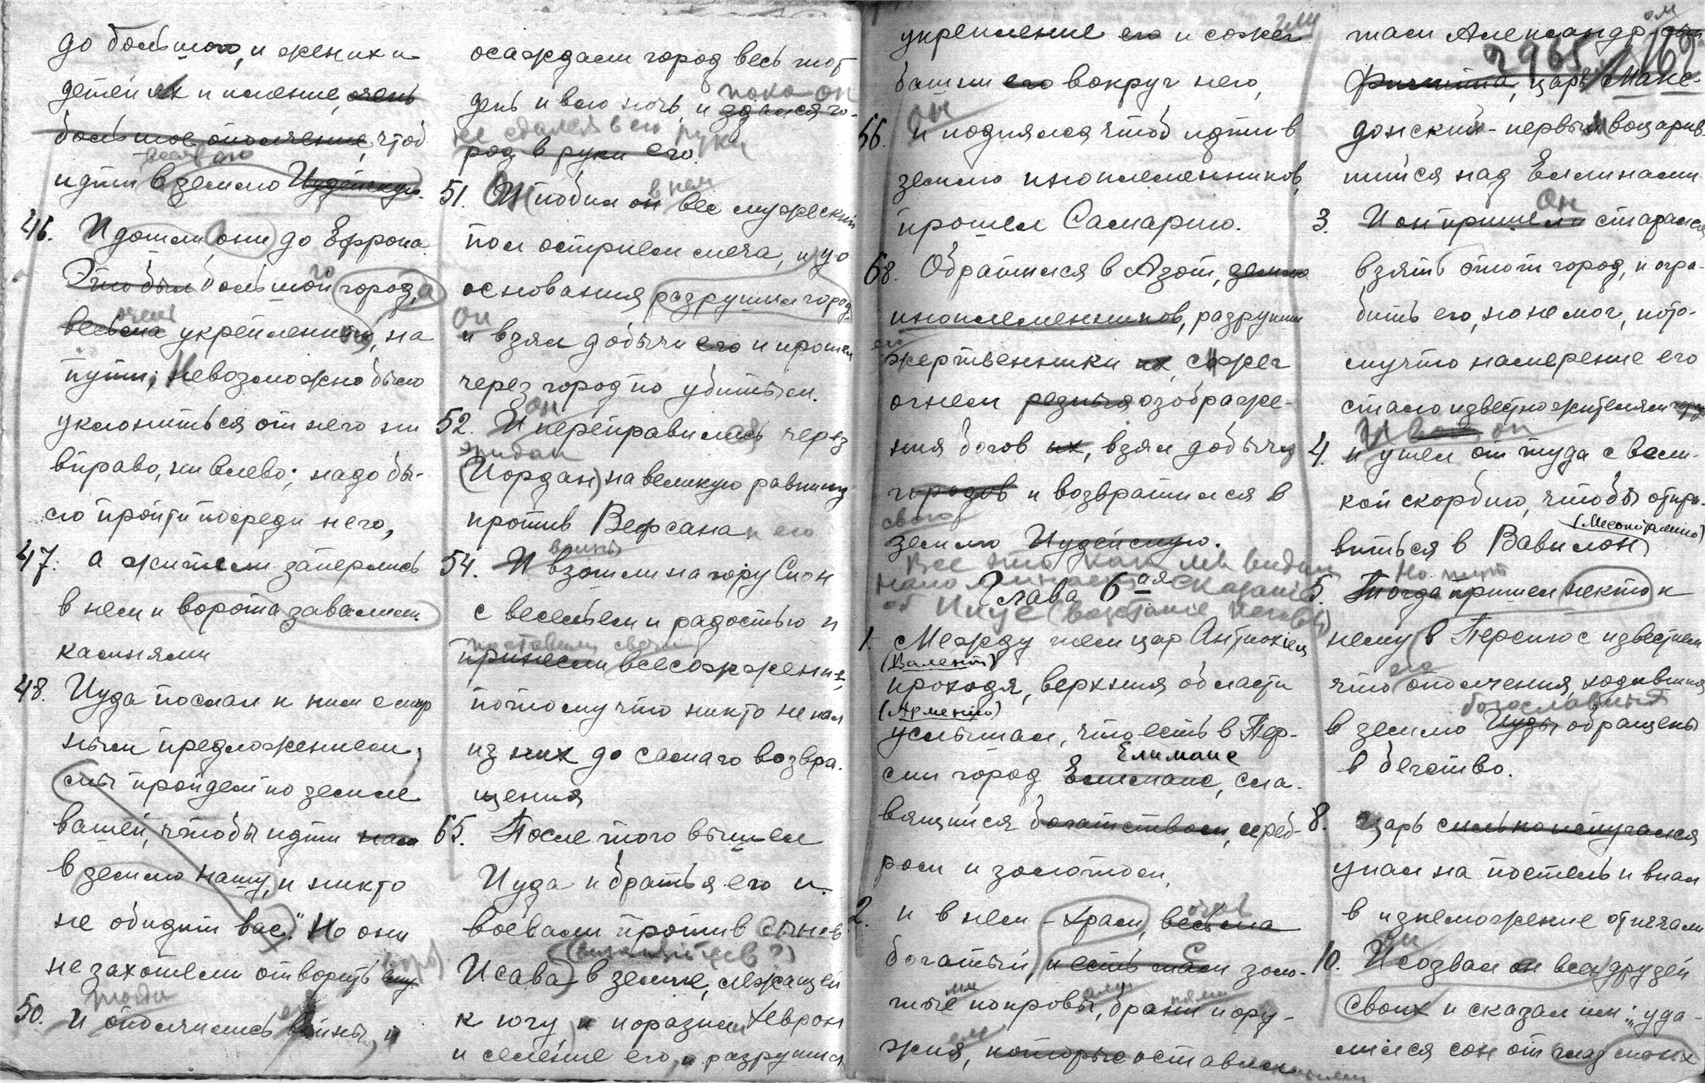 до большого, и жен их и
детей их и имение, очень
большое ополчение, чтоб
идти в землю Иудейскую.
46. И дошли они до Ефрона
Это был большой город,
весьма укрепленный, на
пути; Невозможно было
уклониться от него ни
вправо, ни влево; надо бы-
ло пройти посреди него,
47. а жители заперлись
в нем и ворота завалили
камнями
48. Иуда послал к ним с мир
ным предложением;
мы пройдем по земле
вашей, чтобы идти нам
в землю нашу, и никто
не обидит вас." Но они
не захотели отворить ему
тогда
50. и ополчились воины, и
осаждали город весь тот
день и всю ночь, и
пока он
сдался го-
не сдался в его руки
род в руки его.
51. И побил он все мужеский
в нем
пол острием меча, и до
основания разрушил город
он
и взял добычи его и прошел
через город по убитым.
он
52. И переправились через
Эридан
(Иордан) на великую равнину
против Вефсана
54. И взошли на гору Сион
с весельем и радостью и
принесли всесожжения,
потому что никто не пал
из них до самаго возвра-
щения
65. После того вышел
Иуда и братья его и
воевали против сынов
(византийцев?)
Исава в земле, лежащей
к югу и поразил Хеврон
и селение его, и разрушил
укрепление его и сожег
башни его вокруг него,
он
66. и поднялся чтоб идти в
землю иноплеменников,
прошел Самарию.
68. Обратился в Азот, землю
иноплеменников, разрушил
жертвенники их, сжег
огнем резныя изображе-
ния богов их, взял добычу
городов и возвратился в
свою
землю Иудейскую.
Все это как мы видим
сказание
Глава 6ая
об Иисусе
1. Между тем цар Антиохия
(Валент)
проходя, верхния области
(Армению)
услышал, что есть в Пер-
Елимаис
сии город Елимаис, сла-
вящийся богатством, сереб-
ром и золотом,
2. и в нем - храм, весьма
богатый, и есть там золо-
тые покровы, брони и ору-
жия, которые оставил
тали Александр
2965 169
Филиппа, царь Маке-
донский - первый воцарив
шийся над Еллинами
Он
3. И он пришел и старался
взять этот город, и огра-
бить его, но не мог, пото-
му что намерение его
стало известно жителям
4. и ушел от туда с вели-
кой скорбию, чтобы отпра-
(Месопотамию)
виться в Вавилон
Но тут
5. Тогда пришел некто к
нему в Персию с известием
что ополчения, ходившия
богославия
в землю Иуды обращены
в бегство.
8. Царь сильно испугался
упал на постель и впал
в изнеможение от печали
10. И созвал он всех друзей
своих и сказал им: „уда-
лился сон от глаз моих